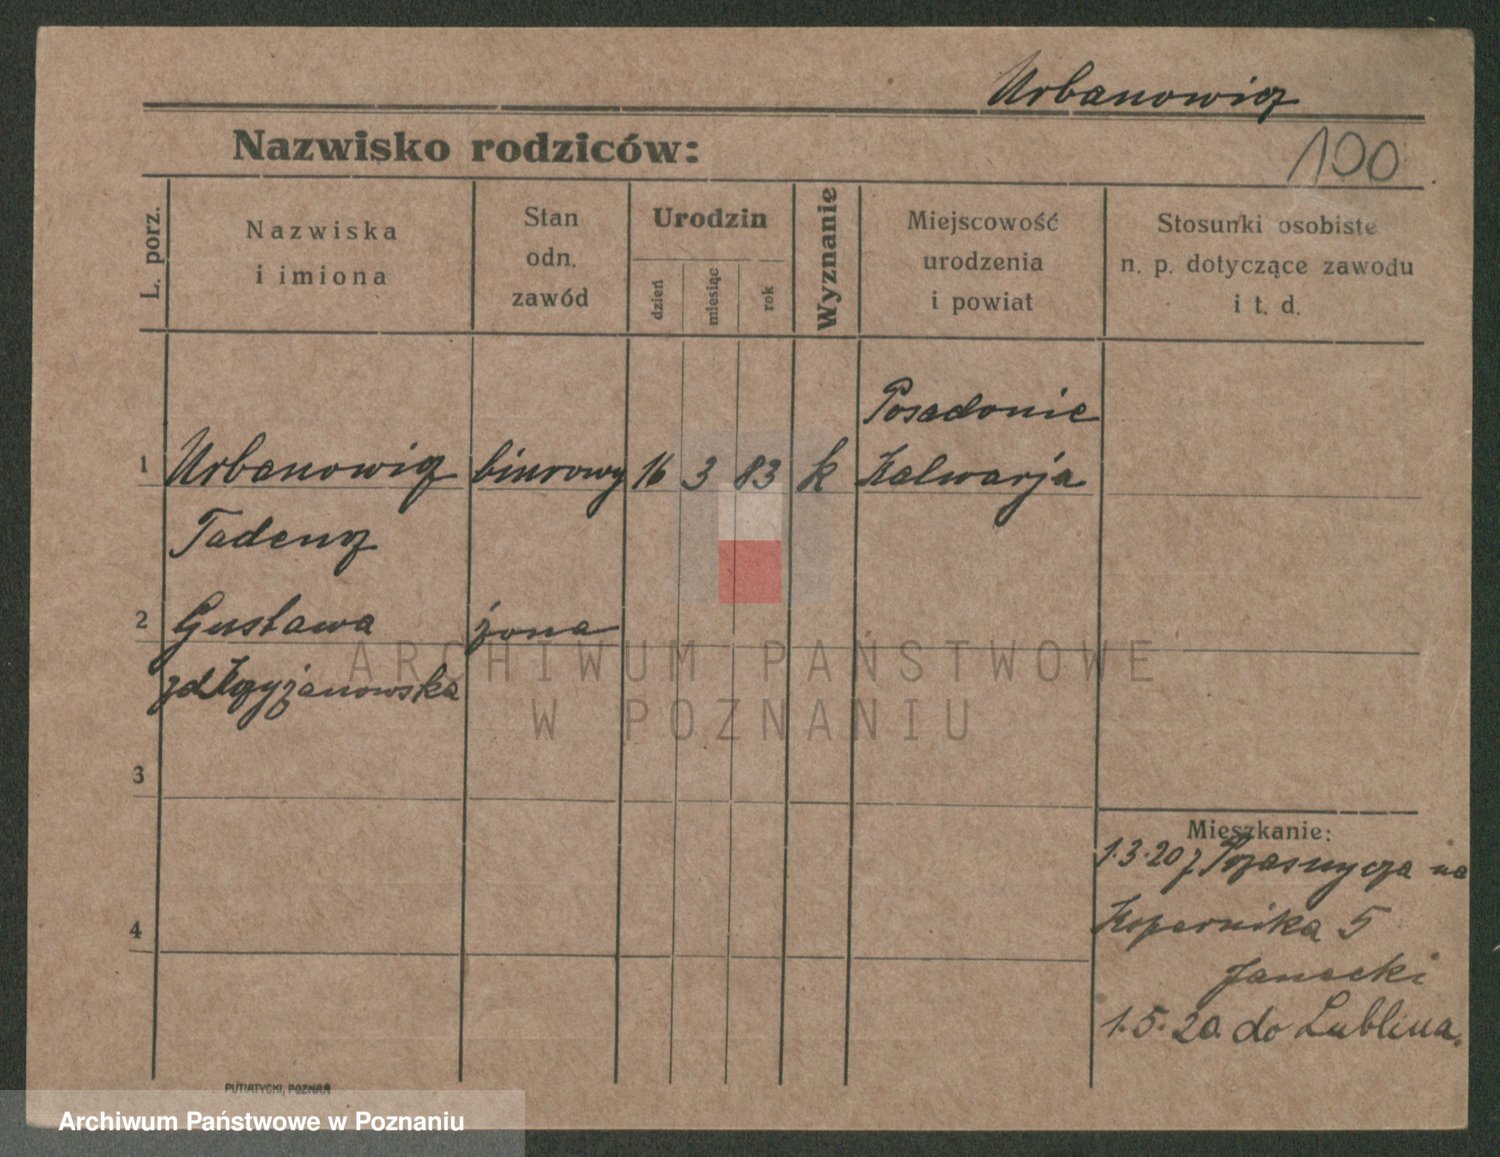 Urbanowicz
Nazwisko rodziców:
100
L. porz.
Nazwiska
i imiona
Stan
odn.
zawód
Urodzin
dzień
miesiąc
rok
Wyznanie
Miejscowość
urodzenia
i powiat
Stosunki osobiste
n. p. dotyczące zawodu
i t. d.
1
Urbanowicz
biurowy
16
3
83
k
Posadonie
Kalwarja
Tadeusz
2
Gustawa
żona
zd Krzyżanowska
ARCHIWUM PAŃSTWOWE
W POZNANIU
3
4
Mieszkanie:
1.3.20 z Przasnysza na
Kopernika 5
Janecki
1.5.20. do Lublina.
PUTIATYCKI, POZNAŃ
Archiwum Państwowe w Poznaniu